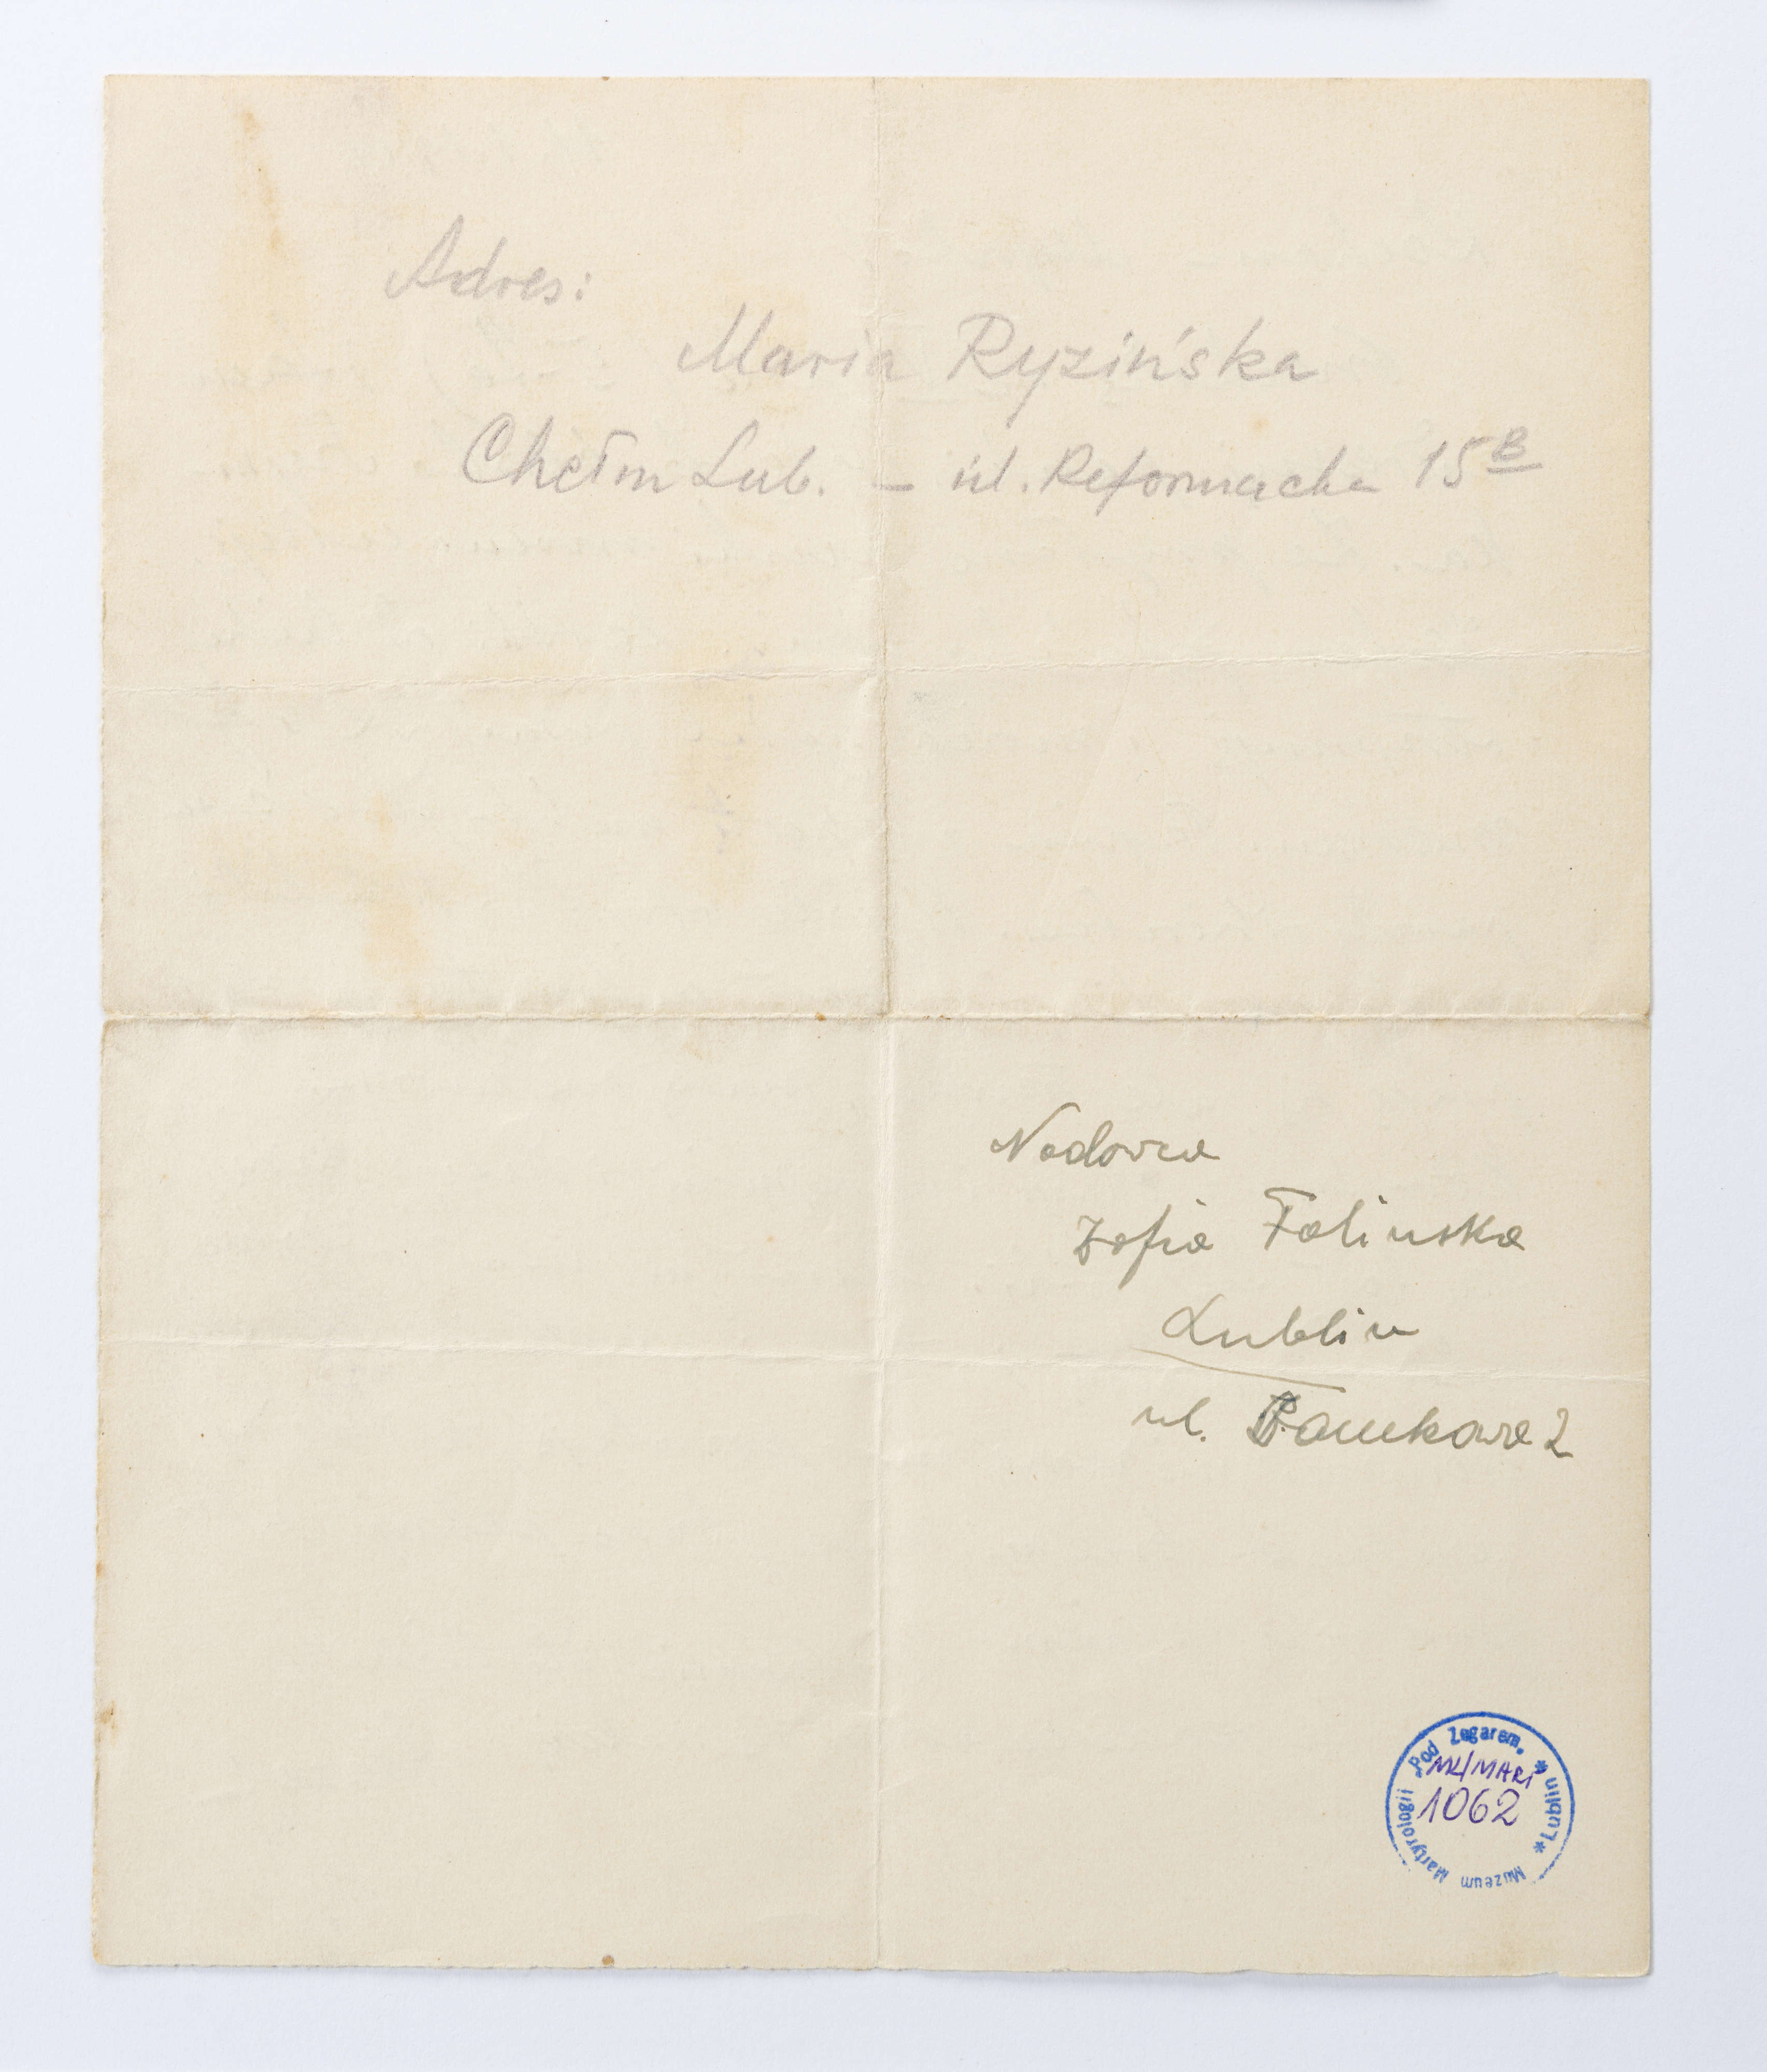 Adres:
Maria Ryzińska
Chełm Lub. – ul. Reformacka 15B
Nadawca
Zofia Falinska
Lublin
ul.
Muzeum Martyrologii „Pod Zegarem„ * Lublin *
MK/MART
1062